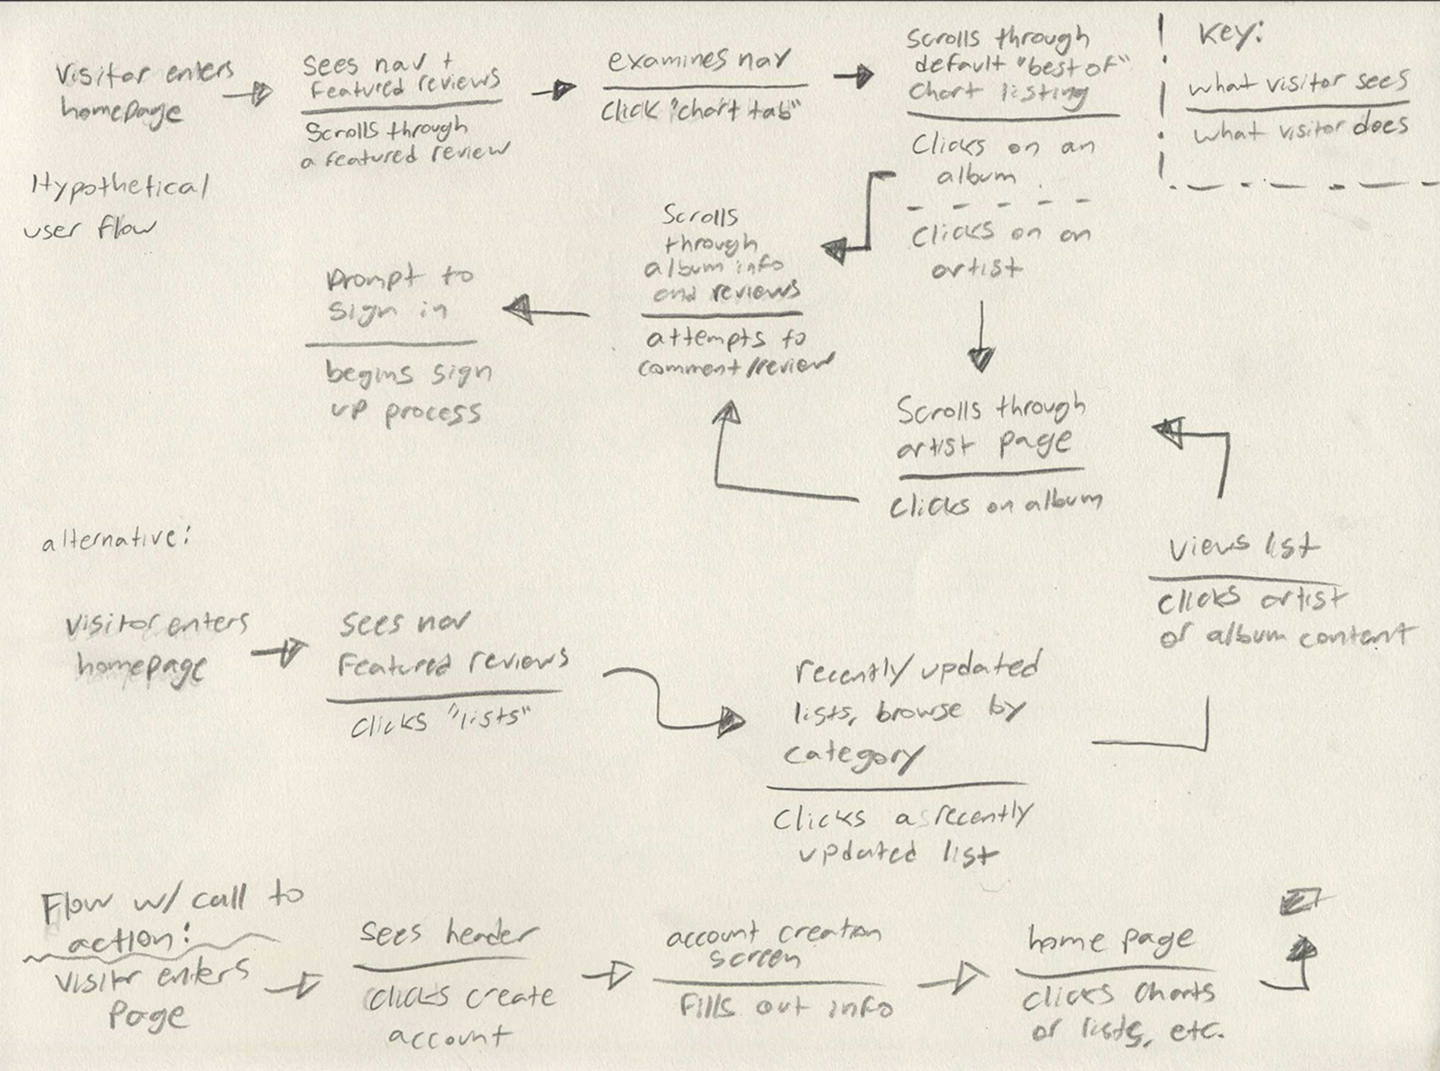 Visitor enters
homepage
Sees nav +
Featured reviews
Scrolls through
a featured review
examines nav
Click "chart tab"
Scrolls through
default "best of"
chart listing
Clicks on an
album
Clicks on an
artist
Key:
what visitor sees
what visitor does
Hypothetical
user flow
Scrolls
through
album info
and reviews
attempts to
comment/review
Prompt to
sign in
begins sign
up process
Scrolls through
artist page
Clicks on album
alternative:
Visitor enters
homepage
Sees nav
Featured reviews
Clicks "lists"
recently updated
lists, browse by
category
Clicks a recently
updated list
Views list
Clicks artist
or album content
Flow w/ call to
action:
Visitor enters
Page
Sees header
Clicks create
account
account creation
screen
Fills out info
home page
Clicks Charts
or lists, etc.